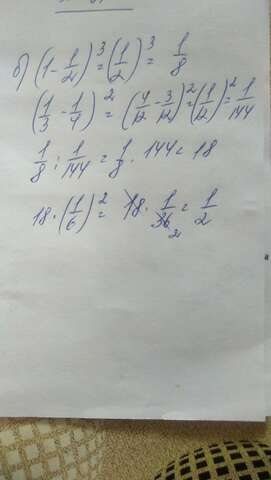 б) (1-1/2)³=(1/2)³=1/8
(1/3-1/4)²=(4/12-3/12)²=(1/12)²=1/144
1/8:1/144=1/8·144=18
18·(1/6)²=18·1/36=1/2
2